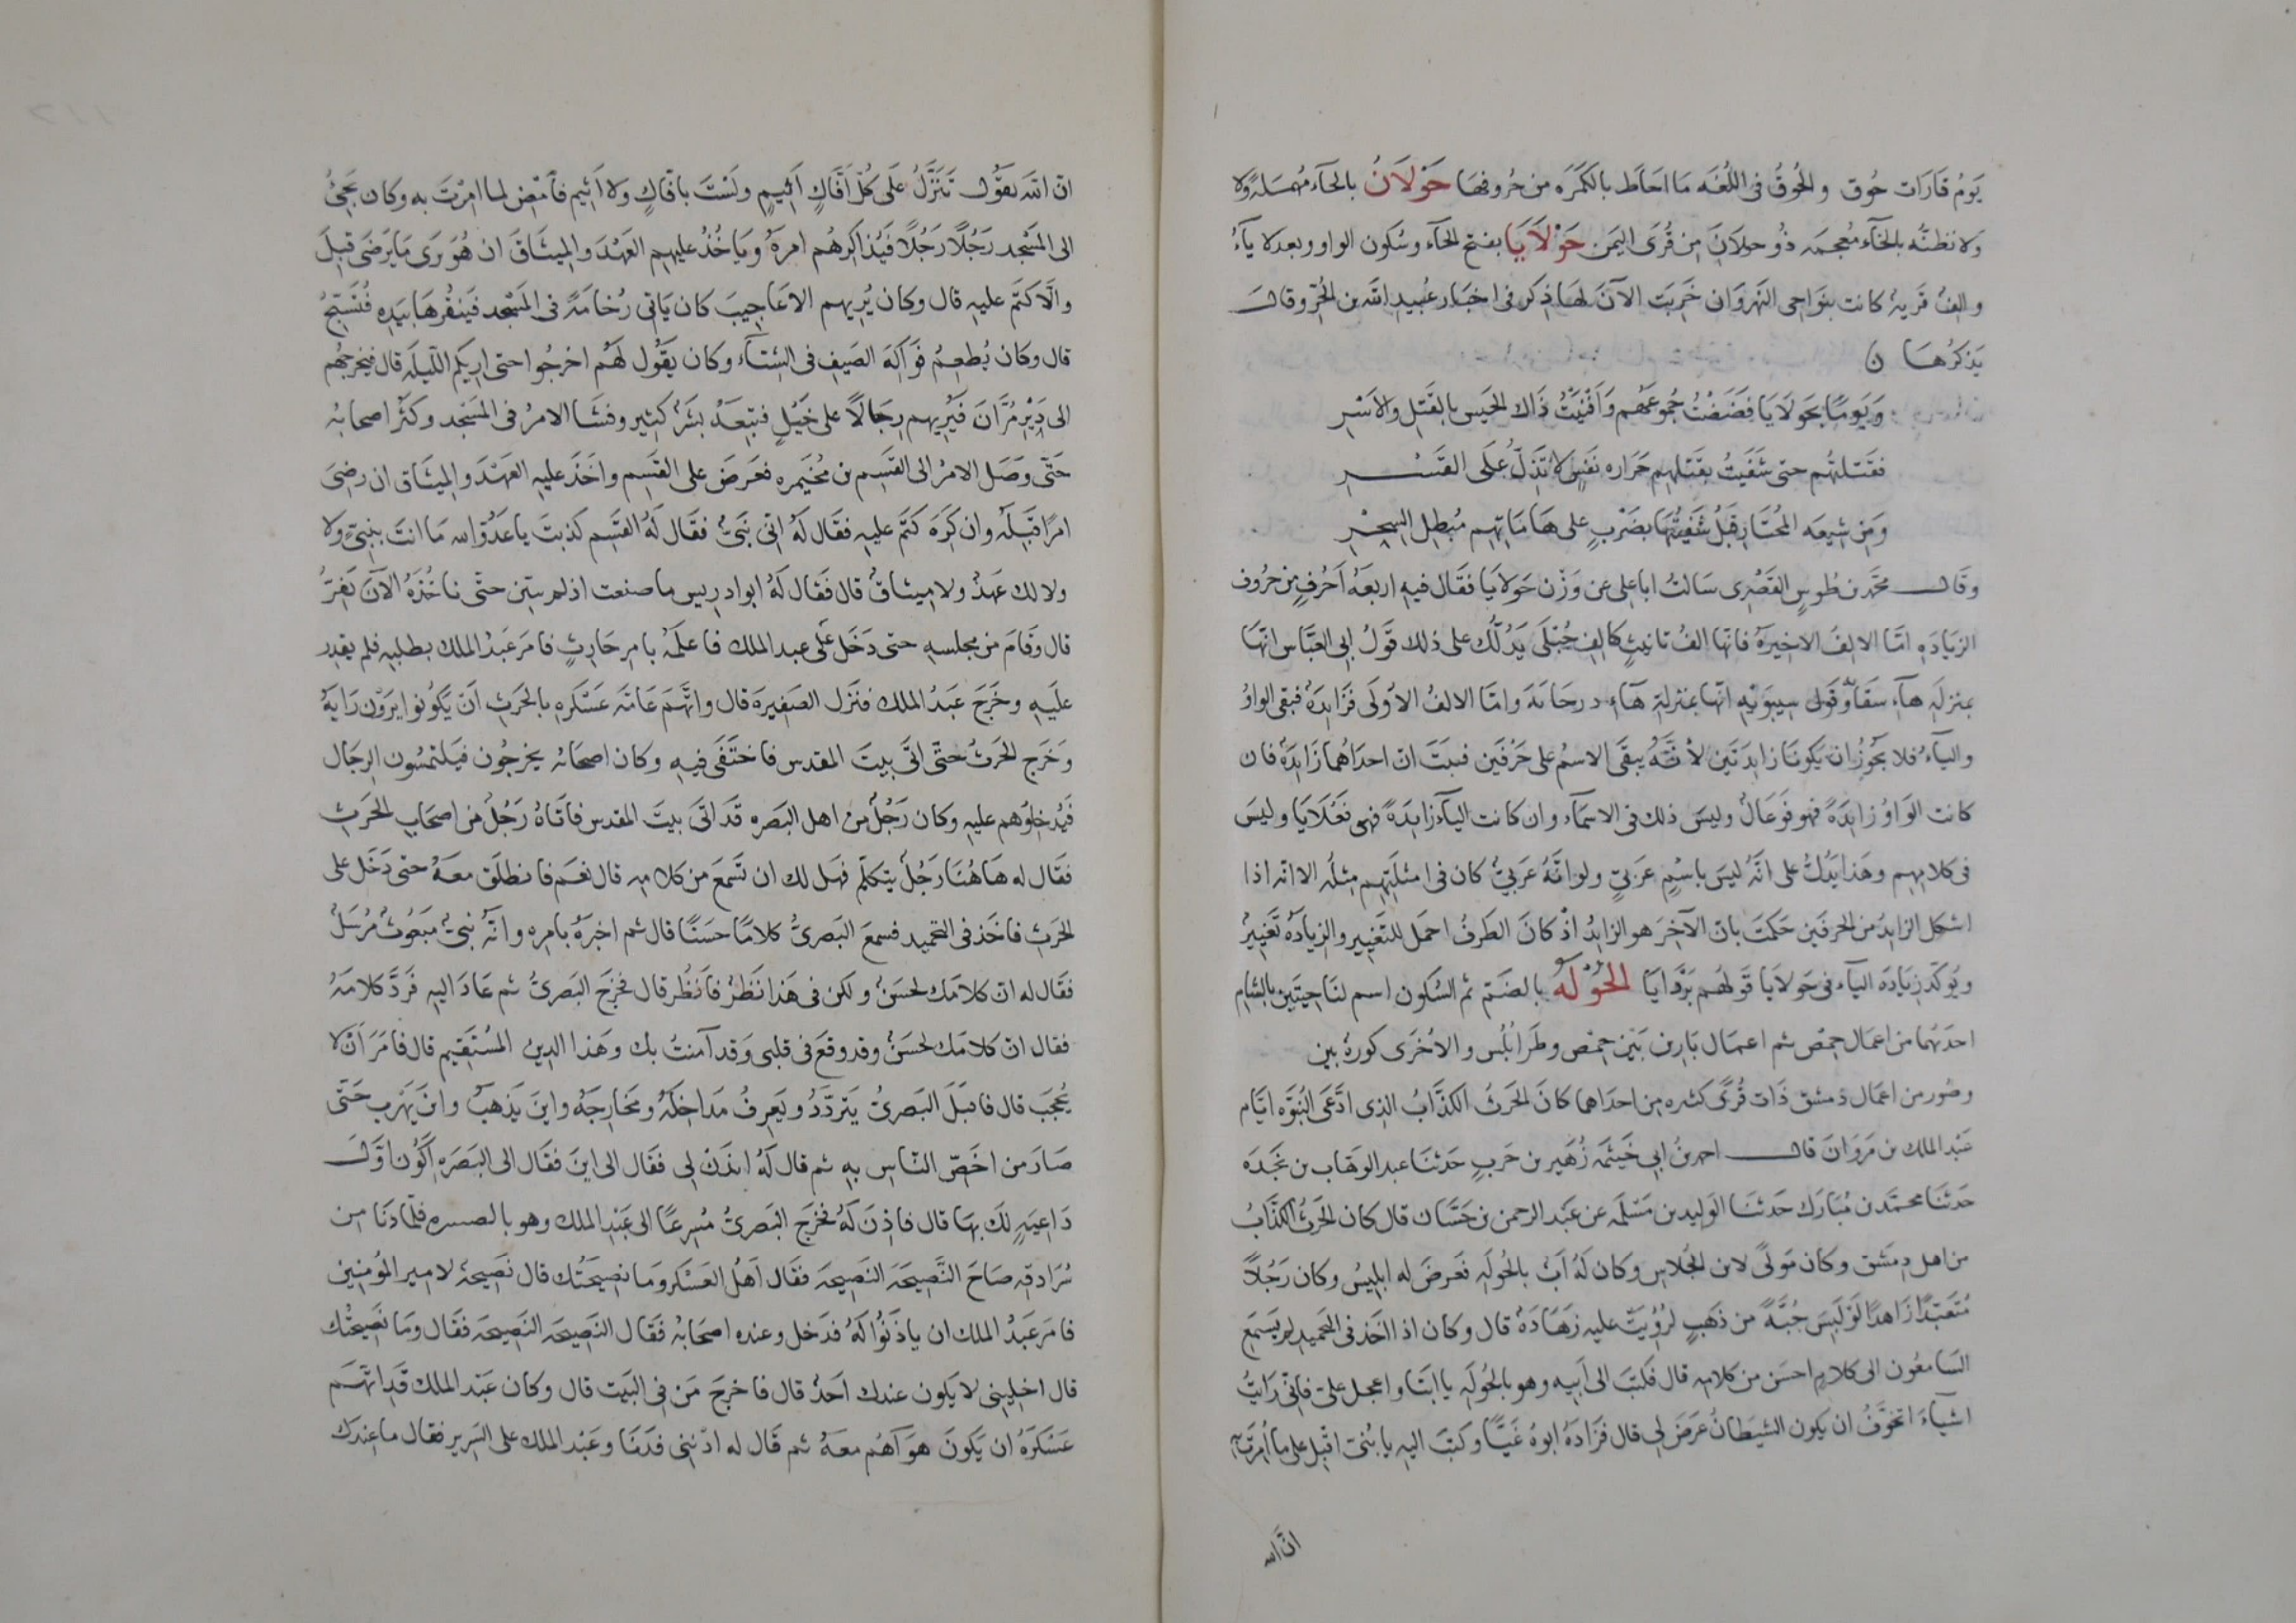 يَومُ قَارَات حُوق والحُوقُ فى اللُغَه مَا احَاطَ بالكَمَرَه من حُروفهَا حَوْلَانُ بالحآء مُهمَلةً ولا
ولا نظنّه بالخآء مُعجمَه ذُو حولَانَ مِن قُرَى اليَمَن حَوْلَايَا بفتح الحآء وسُكون الواو وبعد لا يآءُ
والفُ قَريةُ كانت بنَوَاحى النهرَوَان خَرِبَت الآنَ لهَا ذِكر فى اخبَار عُبيد الله بن الحُرّ وقالَ
يَذكرُهَا ن
وَيَومًا بحَولَايَا فضَضْتُ جُموعَهُم وَافنَيتُ ذَاك الجَيس بالقَتلِ والاَسْرِ
فقَتلتُهُم حتى شفَيتُ بقَتلهِم حَرَاره نَفسٍ لا تَذِلُّ عَلَى القَسْرِ
وَمِن شِيعَه المُختَارِ قَبلُ شفَيتُهَا بضَرْبٍ على هَامَاتِهِم مُبطلِ السِحْرِ
وقَال محمَّد بن طُوسٍ القَصْرِى سَالتُ ابا على عن وَزْن حَولَايَا فقَال فيهِ اربعَهُ اَحرُفٍ من حُروف
الزيَادَهِ امّا الالفَ الاخيرَهُ فانهَا الفُ تانيثٍ كَالِفِ حُبْلَى يَدُلُّك على ذلك قَولُ ابى العبَّاس انهَا
بمنزلَهِ هَآءِ سقَاوَة وَقَول سِيبَوَيْهِ انّها بمنزلةِ هَآءِ درحَايَهَ وامّا الالفُ الاُولَى فزَايدَهُ فبَقِى الواوُ
واليَآءُ فلا يجَوزُ ان يَكونَا زايدَتَين لأنّهُ يبقَى الاسمُ على حَرْفَين فثبتَ انّ احدَاهُما زَايدَهٌ فان
كانت الوَاوُ زايدَةً فهو فَوعَالُ وليسَ ذلك فى الاسمَآء وان كانت اليآءُ زايدَةً فهى فَعْلَايَا وليسَ
فى كلامِهم وهَذَا يَدُلُّ على انّهُ ليسَ باسْمٍ عَرَبىٍّ ولو انّهُ عَرَبىٌّ كان فى امثلَتِهِم مِثلُه الا انّه اذا
اشكل الزايدُ من الحرفَين حكَمتَ بانّ الآخِرَ هو الزايدُ اذْ كانَ الطَرفُ احمَل للتَغيير والزيادَهُ تَغييرٌ
ويُوكّد زيَادَهَ اليآء فى حَولَايَا قَولهُم بَرْدَايَا الحُوْلَهُ بالضَم ثم السُكون اسم لنَاحيَتَين بالشام
احدَتهُما من اعمَال حِمْص ثم اعمَال بَارين بَيْن حِمْص وطَرَابُلُس والاُخْرَى كورةُ بين
وصُور من اعمال دمشق ذَات قُرًى كثيره من احدَاهما كانَ الحَرثُ الكذَّابُ الذى ادَّعَى النُبوَّه ايّام
عَبد الملك بن مَروَانَ قال احمد بنُ ابى خَيثمَه زُهَير بن حَربٍ حَدثنَا عبد الوهَاب بن نجَدَه
حَدثنَا محمّد بن مُبَارَك حَدثنَا الوَليد بن مَسْلَمه عن عَبد الرحمن بن حَسَّان قال كان الحَرثُ الكذّابُ
من اهل دِمَشق وكان مَولًى لابن الجُلاسِ وكان لَهُ اَبٌ بالحُولَهِ فَعرضَ له ابليسُ وكان رَجُلاً
مُتَعَبّدًا زَاهدًا لَو لَبِسَ جُبَّةً من ذَهَبٍ لرُؤيَتْ عليه زهَادَةٌ قال وكان اذا اخَذ فى التحميد لم يسَمع
السَامعُون الى كلامٍ احسَن من كلامهِ قال فكتبَ الى اَبيهِ وهو بالحُولَهِ يا ابَتا واعجل علىَّ فانّى رَايتُ
اشيآءَ اتخوّفُ ان يكون الشيطَانُ عَرَضَ لى قال فزَادَهُ ابوهُ غَيًّا وكتبَ اليهِ يا بُنىّ اقبِل على ما اُمرتَ به
انّ الله
انّ الله يقوُل تَنَزَّلُ عَلَى كُلّ اَفَّاكٍ اَثِيمٍ ولَسْتَ بافّاكٍ ولا اَثيم فاَمْضِ لما امِرْتَ به وكان يجَئُ
الى المَسْجد رَجُلاً رَجُلاً فَيُذاكِرُهُم امرَهُ ويَاخُذُ عليهِم العَهْدَ والمِيثَاقَ ان هُوَ رَى مَا يَرضَى قبِلَ
والَّا كتَم عليهِ قال وكان يُريهم الاعَاجِيبَ كان يَاتى رُخامَةً فى المَسْجد فيَنقُرهَا بيَدِه فتُسَبّحُ
قال وكان يُطعِمُ فَواكهَ الصَيفِ فى الشتآء وكان يقَوُل لهُم اخرجُوا حتى اريكم اللّيلَه قال فيخرجهُم
الى دَيْرِ مُرَّانَ فيُرِيهم رِجَالاً على خَيْلٍ فتبعَهُ بشَرٌ كثير وفشَا الامرُ فى المَسْجد وكثُر اصحابُه
حَتّى وَصَل الامرُ الى القَسِم بن مُخَيمره فعَرَضَ على القَسِم واخَذَ عليهِ العَهْدَ والميثَاق ان رضِىَ
امرًا قَبِلَه وان كرَهَ كَتَم عليهِ فقَال لَهُ انى نَبىٌّ فقَال لَهُ القسَم كذبتَ يا عَدُوّ الله مَا انتَ بنبىٍّ ولا
ولا لك عَهدٌ ولا مِيثاقٌ قال فقَال لَهُ ابو ادريس ما صنعت اذ لم تلِن حتّى ناخُذَهُ الآنَ يَفِرُّ
قال وقَامَ من مجلسهِ حتى دَخَل عَلَى عبد الملك فاعلَمَهُ بامرِ حَارِثٍ فامَر عَبدُ الملك بطلبِه فلم يقدِر
عليَهِ وخرَجَ عَبدُ الملك فنزَل الصَنيرةَ قال واتَّهمَ عَامَّه عَسْكَرهِ بالحَرث اَنْ يَكُونوا يَرَوْن رَايَهُ
وَخرَج الحَرثُ حتّى اتَى بيتَ المقدس فاختَفَى فيهِ وكان اصحَابُه يخرجُون فيَلتمسُون الرجَال
فَيُدخلوَهم عليهِ وكان رَجُلٌ من اهل البَصَره قَد اتَى بيتَ المقدس فاتَاهُ رَجُلٌ من اصحَابِ الحَرثِ
فقَال له هَاهُنَا رَجُلٌ يتكلّم فهَل لك ان تَسمَعَ من كلامه قال نعَم فانطَلَقَ معَهُ حتى دَخَل على
الحَرثِ فاخَذ فى التحميد فسمعَ البَصرىُّ كلامًا حسَنًا قال ثم اخبرَهُ بامرِه وانّهُ نبىٌّ مبَعُوثٌ مُرسَلٌ
فقَال له انّ كلامَك لحسَنٌ ولكن فى هَذا نَظَرٌ فانْظُر قال فخرَجَ البَصرىُّ ثم عَادَ اليهِ فَردَّ كلامَهُ
فقال انّ كلامَك لحَسَنٌ وقد وقعَ فى قلبى وَقد آمنتُ بك وهَذا الدينُ المُستَقيم قال فامَرَ اَنْ لا
يُحجَبَ قال فاقبَلَ البَصرىُّ يتَردّدُ ويَعرفُ مَداخلَهُ ومخَارجَهُ واينَ يَذهبُ واينَ يَهْرب حَتّى
صَارَ من اخَصّ النّاس بهِ ثم قال لَهُ ائذنْ لى فقَال الى اينَ فقَال الى البَصَره اَكوُن اوّلَ
دَاعيَهٍ لكَ بهَا قال فاذِنَ لَهُ فخرَجَ البَصرىُّ مُسرعًا الى عَبد الملك وهو بالصنيره فلمّا دَنَا من
سُرَادقِه صَاحَ النَّصِيحَه النَصِيحَه فقَال اهلُ العَسْكر ومَا نصيحَتُك قال نَصِيحَهٌ لامير المُومنين
فامَر عَبدُ الملك ان ياذَنُوا لَهُ فدَخل وعنده اصحَابُهُ فقَال النَصِيحَه النَصِيحَه فقَال ومَا نَصِيحَتُك
قال اخلِنِى لا يَكون عندك اَحَدٌ قال فاخرجَ مَن فى البَيت قال وكان عَبد الملك قَد اتهَم
عَسْكَرَهُ ان يَكونَ هوَاهُم معَهُ ثم قَال له ادنِنى فَدَنَا وعَبد الملك على السَرير فقال ما عِندَك